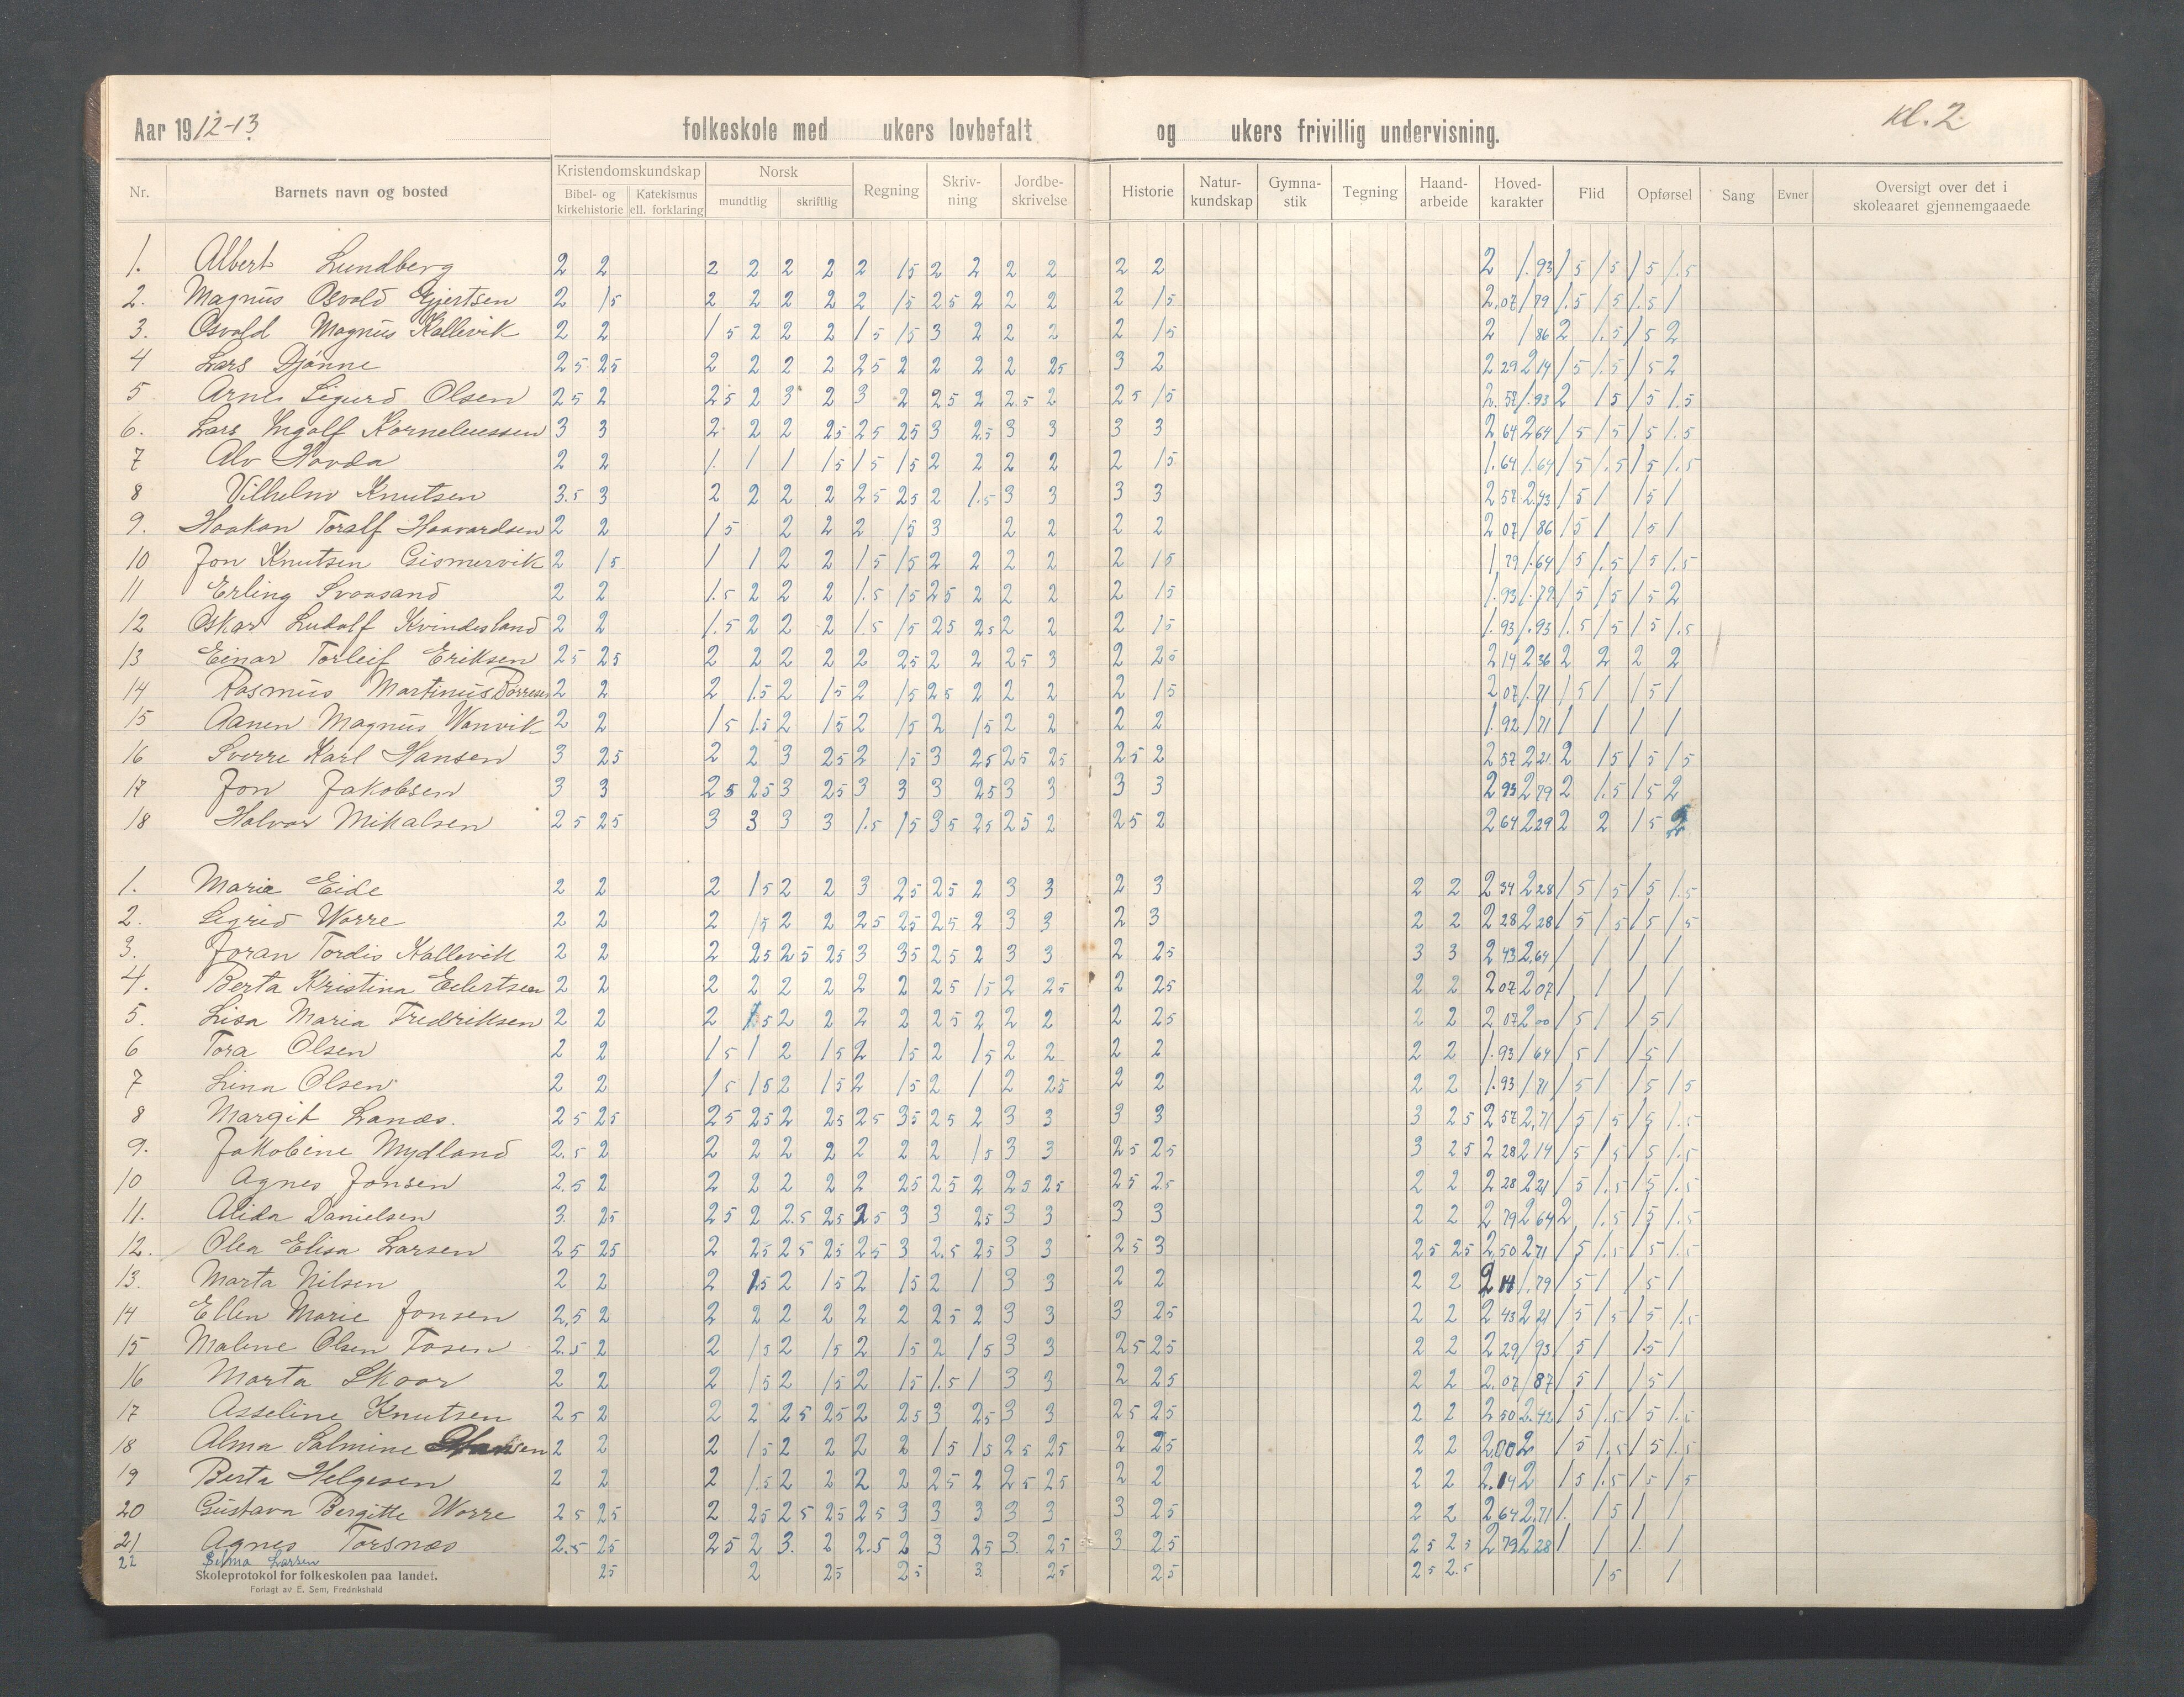 Aar 1912-13 folkeskole med ukers lovbefalt og ukers frivillig undervisning. kl. 2
Nr. Barnets navn og bosted Kristendomskundskap Bibel- og kirkehistorie Katekismus ell. forklaring Norsk mundtlig skriftlig Regning Skriv-ning Jordbe-skrivelse Historie Natur-kundskap Gymna-stik Tegning Haand-arbeide Hoved-karakter Flid Opførsel Sang Evner Oversigt over det i skoleaaret gjennemgaaede
1. Albert Lundberg 2 2 2 2 2 2 2 15 2 2 2 2 2 2 2 1.93 15 15 15 1.5
2. Magnus Osvald Gjertsen 2 15 2 2 2 2 2 15 25 2 2 2 2 15 2.07 179 1.5 15 1.5 1
3. Osvald Magnus Kallevik 2 2 15 2 2 2 15 15 3 2 2 2 2 15 2 186 2 1.5 15 2
4 Lars Djønne 25 25 2 2 2 2 25 2 2 2 2 25 3 2 229 214 15 1.5 15 2
5 Arne Sigurd Olsen 25 2 25 2 3 2 3 2 25 2 2.5 2 25 15 2.57 1.93 2 15 15 1.5
6. Lars Ingolf Korneliussen 3 3 2 2 2 25 25 25 3 2.5 3 3 3 3 264 264 15 15 15 1.5
7 Alv Hovda 2 2 1. 1 1 15 15 15 2 2 2 2 2 15 1.64 1.64 15 1.5 15 1.5
8 Vilhelm Knutsen 3.5 3 2 2 2 2 25 25 2 1.5 3 3 3 3 257 2.43 15 1 15 1
9. Haakon Toralf Haavardsen 2 2 15 2 2 2 15 3 2 2 2 2 207 186 15 1 15 1
10 Jon Knutsen Gismervik 2 15 1 1 2 2 15 15 2 2 2 2 2 15 1.79 1.64 15 1.5 15 1.5
11 Erling Svaasand 2 2 1.5 2 2 2 1.5 15 25 2 2 2 2 15 1.93 1.79 15 15 15 2
12 Oskar Ludolf Kvindesland 2 2 1.5 2 2 2 1.5 15 25 25 2 2 2 15 1.93 1.93 1.5 15 15 1.5
13 Einar Torleif Eriksen 25 25 2 2 2 2 2 25 2 2 25 3 2 25 214 236 2 2 2 2
14 Rasmus Martinus Børresen 2 2 2 1.5 2 15 2 15 25 2 2 2 2 15 207 1.71 15 1 15 1
15 Aanen Magnus Vanvik 2 2 15 1.5 2 15 2 15 2 15 2 2 2 2 1.92 171 1 1 1 1
16 Sverre Karl Hansen 3 25 2 2 3 25 2 15 3 25 25 25 25 2 257 221. 2 15 15 15
17 Jon Jakobsen 3 3 25 25 3 25 3 3 3 25 3 3 3 3 293 279 2 1.5 15 2
18 Halvor Mikalsen 25 25 3 3 3 3 1.5 15 35 25 25 2 25 2 264 229 2 2 15 2
1. Marie Eide 2 2 2 15 2 2 3 25 25 2 3 3 2 3 2 2 234 228 15 15 15 1.5
2. Sigrid Vorre 2 2 2 15 2 2 25 25 25 2 3 3 2 3 2 2 228 228 15 15 15 15
3. Joran Tordis Kallevik 2 2 2 25 25 25 3 35 25 2 3 3 2 25 3 3 243 2.64 1 1 1 1
4. Berta Kristina Eilertsen 2 2 2 2 2 2 2 2 25 15 2 25 2 25 2 2 207 207 1 1 1 1
5. Lisa Maria Fredriksen 2 2 2 15 2 2 2 2 25 2 2 2 2 25 2 2 207 200 15 1 15 1
6 Tora Olsen 2 2 15 1 2 15 2 15 2 15 2 2 2 2 2 2 1.93 164 15 1 15 1
7 Lina Olsen 2 2 15 15 2 15 2 15 2 1 2 25 2 2 2 2 1.93 171 15 1 15 15
8 Margit Lanes. 25 25 25 25 2 25 25 35 25 2 3 3 3 3 3 25 257 2.71 15 15 15 1.5
9. Jakobine Mydland 2.5 2 2 2 2 2 2 2 2 15 3 3 25 25 3 25 228 214 15 15 15 1.5
10 Agnes Jonsen 2.5 2 2 2 2 2 2 25 25 2 25 25 25 25 2 2 228 221 15 1.5 15 1.5
11. Alida Danielsen 3. 25 25 2 2.5 25 25 3 3 25 3 3 3 3 2 2 279 264 2 1.5 15 1.5
12. Olea Elisa Larsen 25 25 2 25 25 25 25 3 2.5 25 3 3 25 3 25 25 2.50 271 15 1.5 15 1.5
13. Marta Nilsen 2 2 2 15 2 15 2 15 2 1 3 3 2 2 2 2 214 1.79 15 1 15 1
14 Ellen Marie Jonsen 2.5 2 2 2 2 2 2 2 25 2 3 3 3 25 2 2 243 221 15 15 15 1.5
15 Malene Olsen Tosen 2.5 2 2 15 2 15 2 15 2 15 3 3 25 25 2 2 229 193 15 1 1.5 1
16 Marta Skaar 2 2 2 15 2 15 2 15 1.5 1 3 3 2 25 2 2 2.07 187 15 1 15 1
17 Asseline Knutsen 25 2 2 2 25 25 2 25 3 25 3 3 25 25 2 2 250 2.42 15 1.5 15 1.5
18 Alma Salmine 2 2 2 15 2 2 2 2 15 15 25 25 2 25 2 2 2.00 2 15 1.5 15 1.5
19 Berta Helgesen 2 2 2 1.5 2 2 2 2 25 2 25 25 2 2 2 2 2.14 2 15 1.5 15 15
20 Gustava Bergitte Vorre 25 25 2 25 25 25 25 3 3 3 3 3 3 25 2 2 264 2.71 1. 15 1 1
21 Agnes Torsnæs 2.5 25 25 2 3. 2 2.5 2 3 25 3. 25 3 25 25 25 279 228 1. 1 1. 1
22 Selma Larsen 25 2 25 25 3 25 25 25 2.5 15 1
Skoleprotokol for folkeskolen paa landet.
Forlagt av E. Sem, Fredrikshald